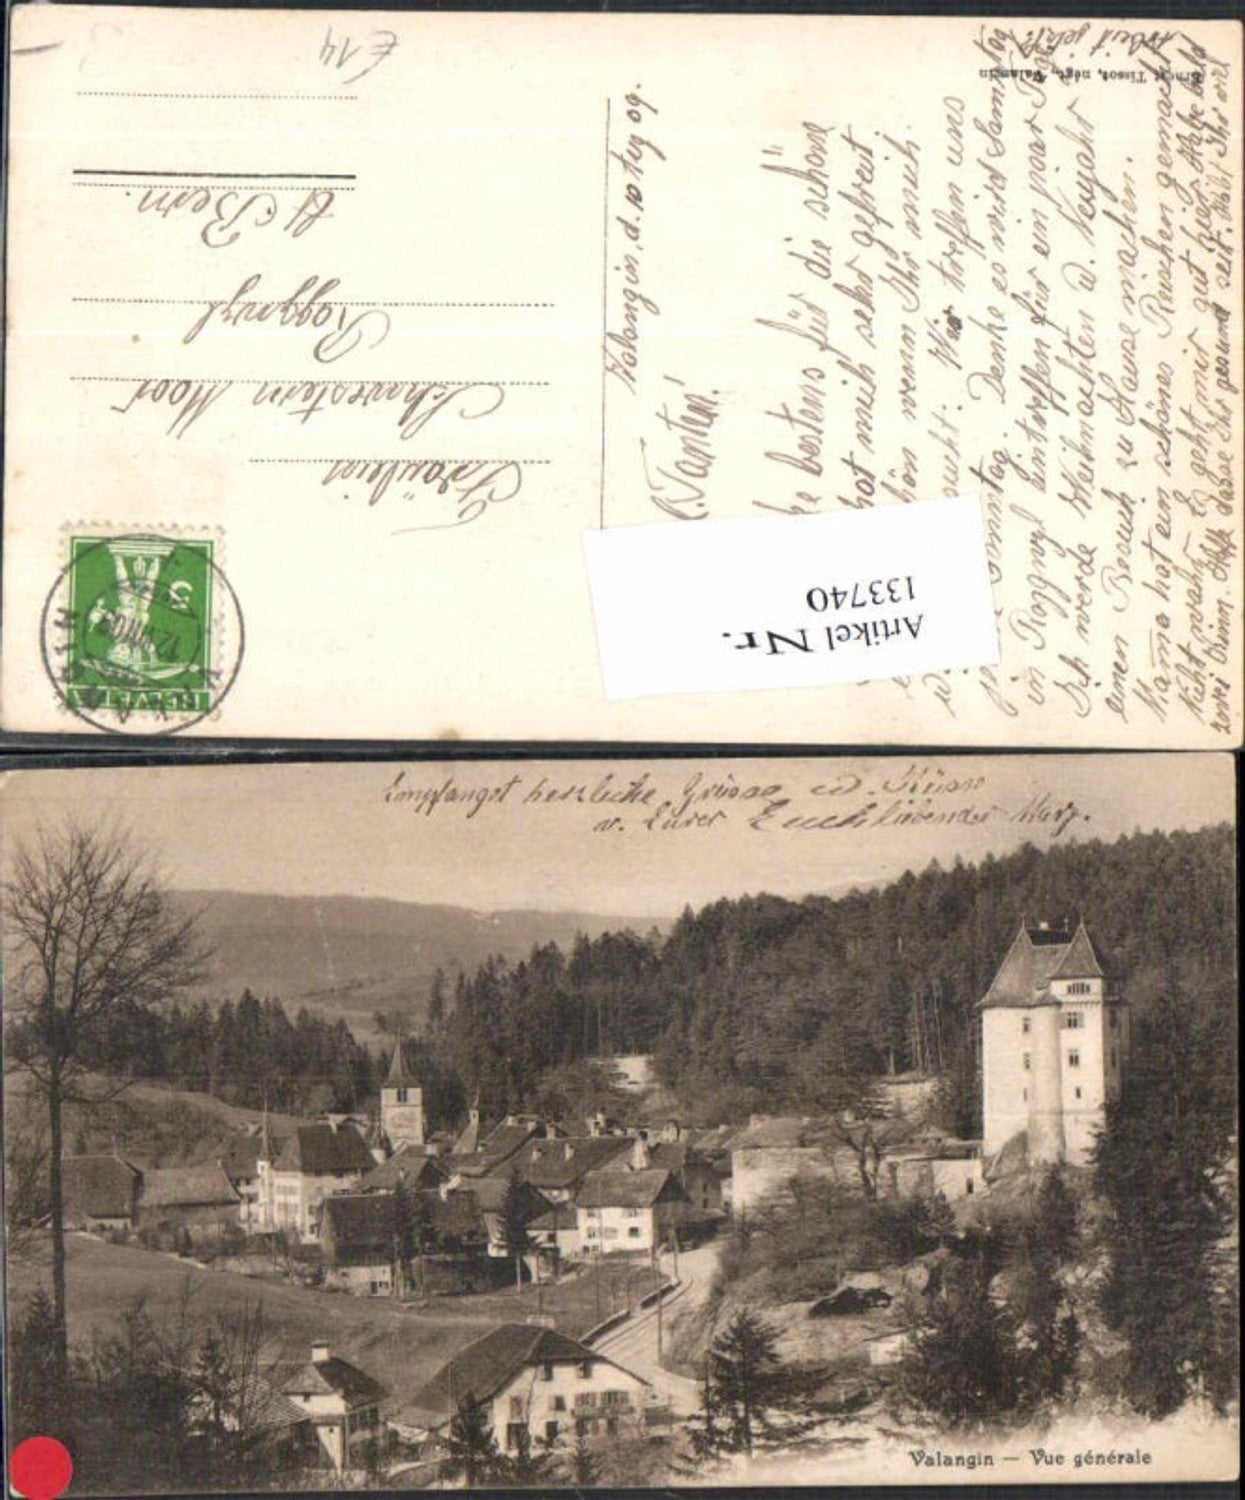 E 14
Fräulein
Schwestern Moor
Roggwyl
Kt. Bern.
HELVETIA
5
VALANGIN
12 VII 09
Ernest Tissot, négt., Valangin
Valangin, d. 10 Aug 09.
L. Tanten!
bestens für die schöne
hat mich sehr gefreut
wenn Ihr mich
Wir treffen uns
Denke es wird Samstag
in Roggwyl eintreffen für ein paar Tage
Ich werde Weihnachten u. Neujahr
einen Besuch zu Hause machen.
Mama hat ein schönes Reischen gemacht
Nicht wahr? Es geht mir gut hier, habe bald
zwei Hoffe dass Ihr gesund seit. Ihr viel
Arbeit gehabt?
Artikel Nr.
133740
Empfanget herzliche Grüsse u. Küsse
v. Eurer Euch liebenden Marg.
Valangin — Vue générale